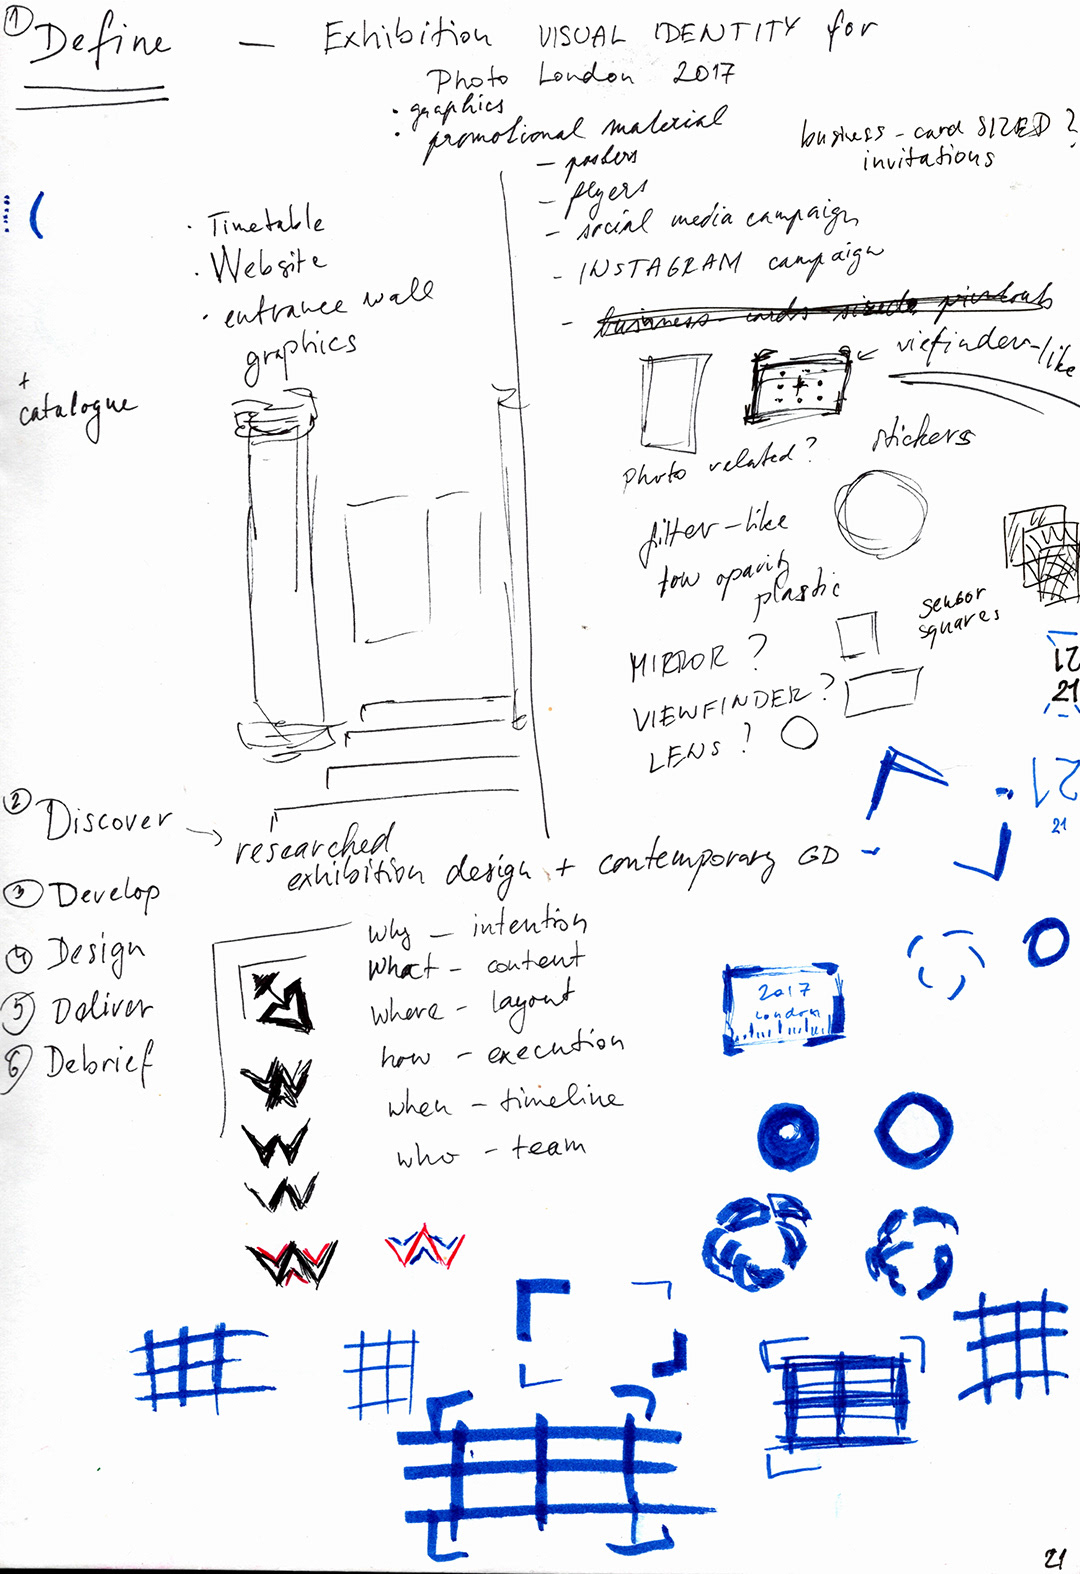 1 Define — Exhibition VISUAL IDENTITY for
Photo London 2017
· graphics
· promotional material
– posters
– flyers
– social media campaign
– INSTAGRAM campaign
business-card SIZED ?
invitations
· Timetable
· Website
· entrance wall
graphics
+
catalogue
– business-cards sized printouts
← viefinder-like
photo related?
stickers
filter-like
low opacity
plastic
sensor
squares
MIRROR ?
VIEWFINDER ?
LENS ?
21
21
21
21
2 Discover → researched
exhibition design + contemporary GD –
3 Develop
4 Design
5 Deliver
6 Debrief
why – intention
what – content
where – layout
how – execution
when – timeline
who – team
2017
London
21